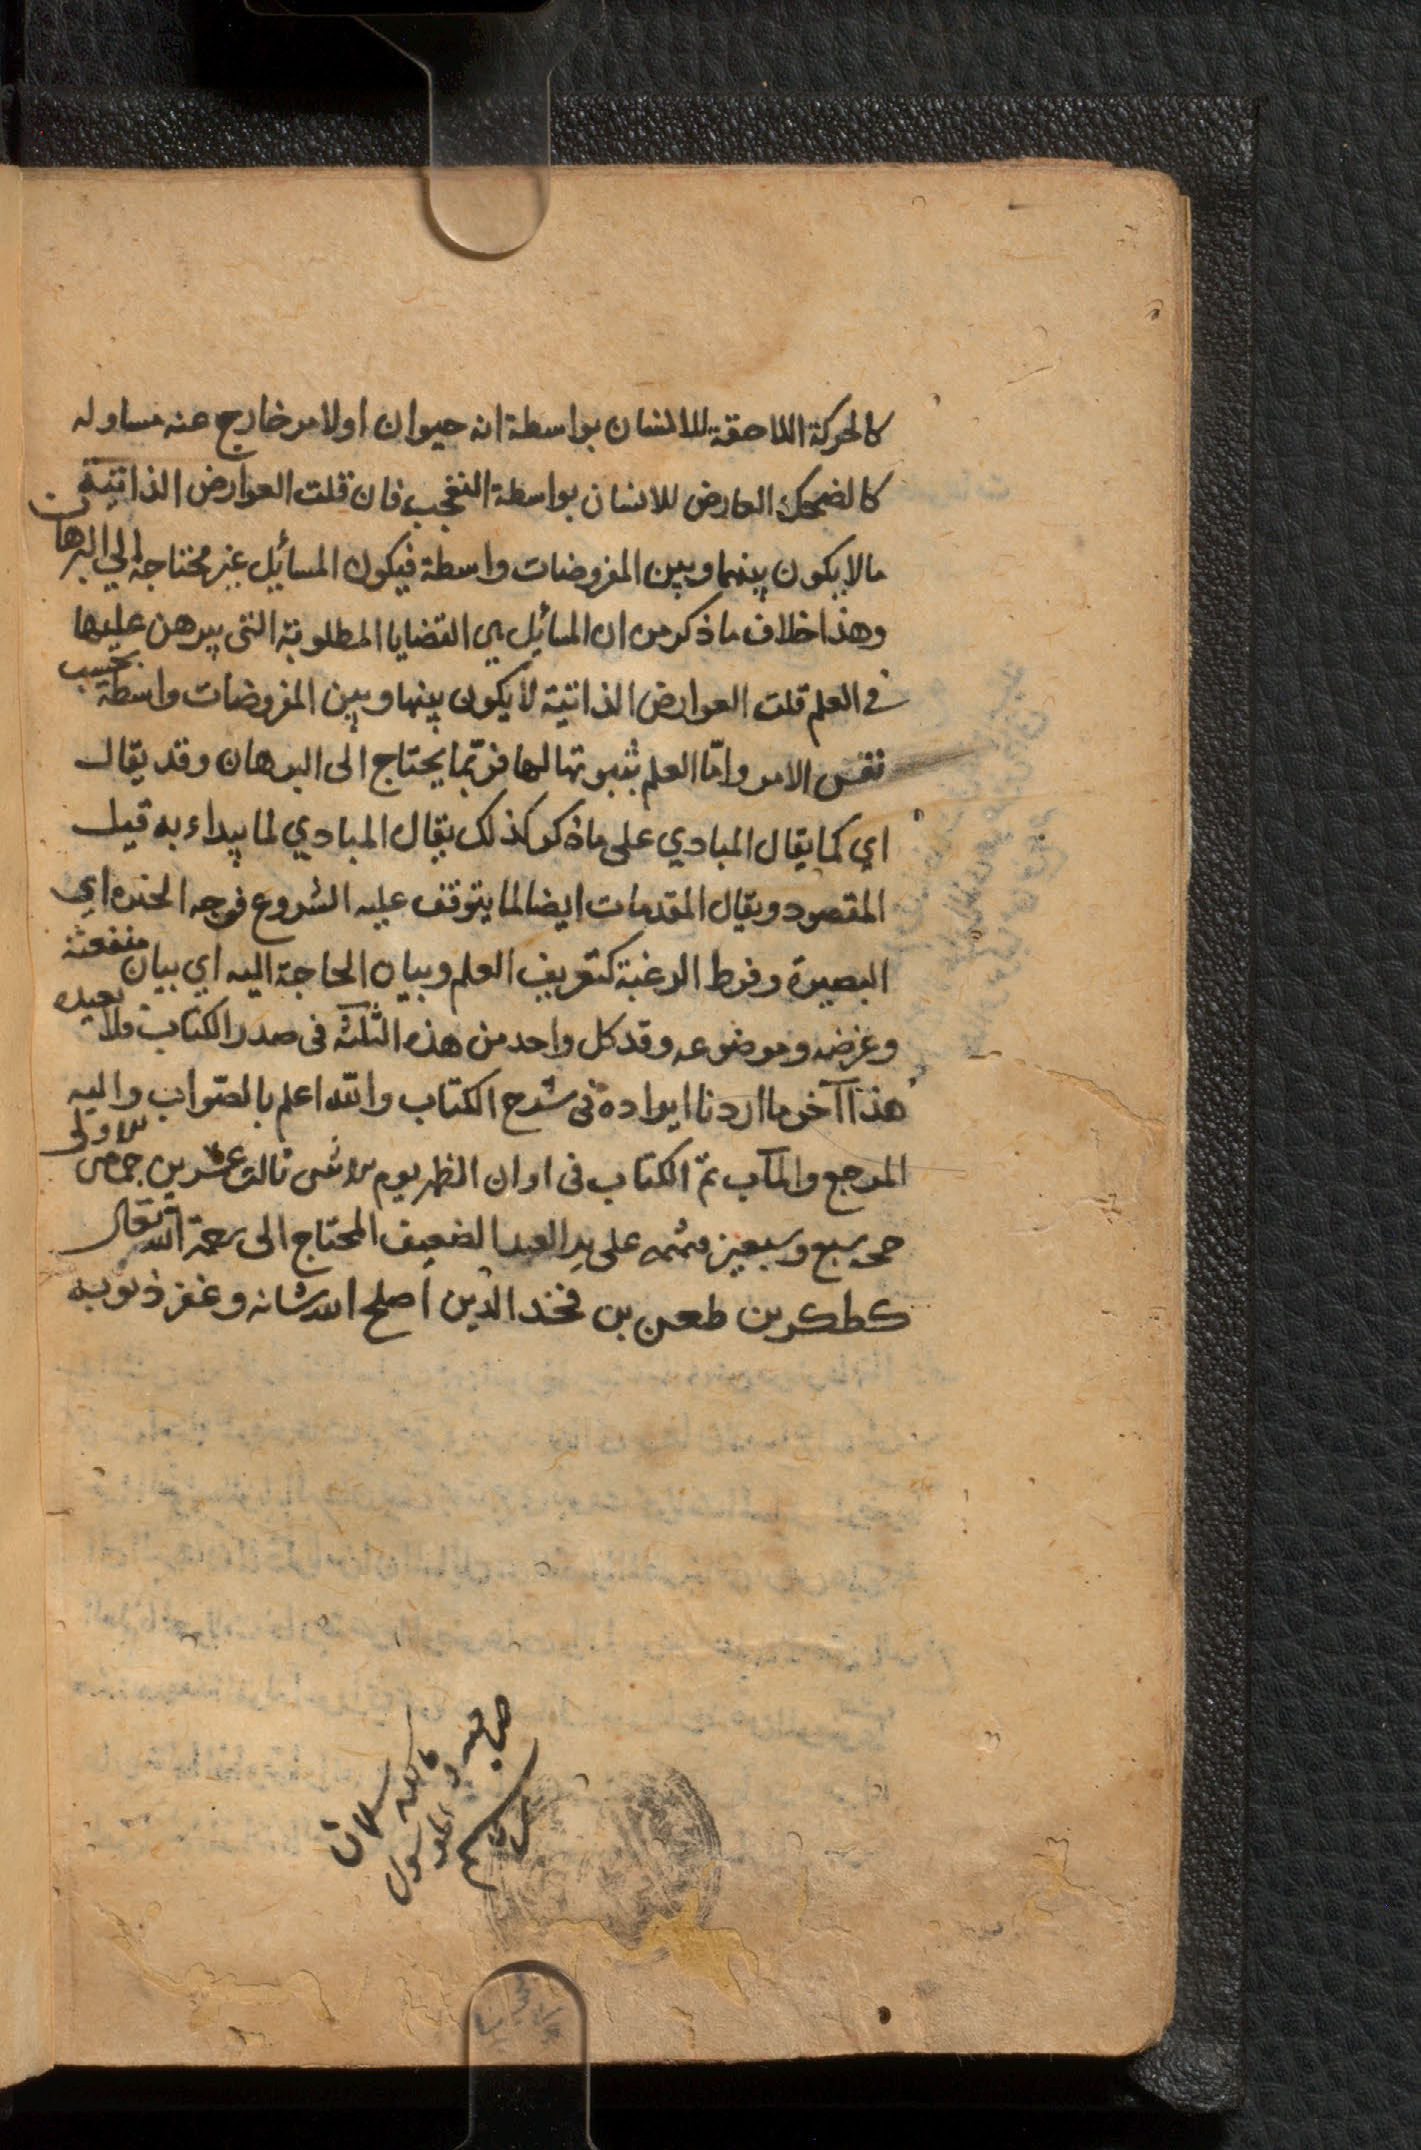 كالحركة اللاحقة للانسان بواسطة انه حيوان او لامر خارج عنه مساو له
كالضحك العارض للانسان بواسطة التعجب فان قلت العوارض الذاتية
مالا يكون بينهما وبين المفروضات واسطة فيكون المسائل غير محتاجة الي البرهان
وهذا خلاف ما ذكر من ان المسائل هي القضايا المطلوبة التي يبرهن عليها
في العلم قلت العوارض الذاتية لا يكون بينها وبين المفروضات واسطة بحسب
نفس الامر وامّا العلم بثبوتها لها فربّما يحتاج الى البرهان وقد يقال
اي كما يقال المبادي على ماذكر كذلك يقال المبادي لما يبداء به قبل
المقصود ويقال المقدمات ايضا لما يتوقف عليه الشروع فوجه الخبره اي
البصيرة وفرط الرغبة كتعريف العلم وبيان الحاجة اليه اي بيان منفعته
وغرضه وموضوعه وقد كل واحد من هذه الثلثة فى صدر الكتاب فلا نعيده
هذا آخر ما اردنا ايراده فى شرح الكتاب والله اعلم بالصّواب واليه
المرجع والمآب تمّ الكتاب فى اوان الظهر يوم ثالث عشرين
سبع وسبعين على يد العبد الضعيف المحتاج الى رحمة الله تعالى
بن بن فخر الدين اصلح الله شانه وغفر ذنوبه
صاحبه و